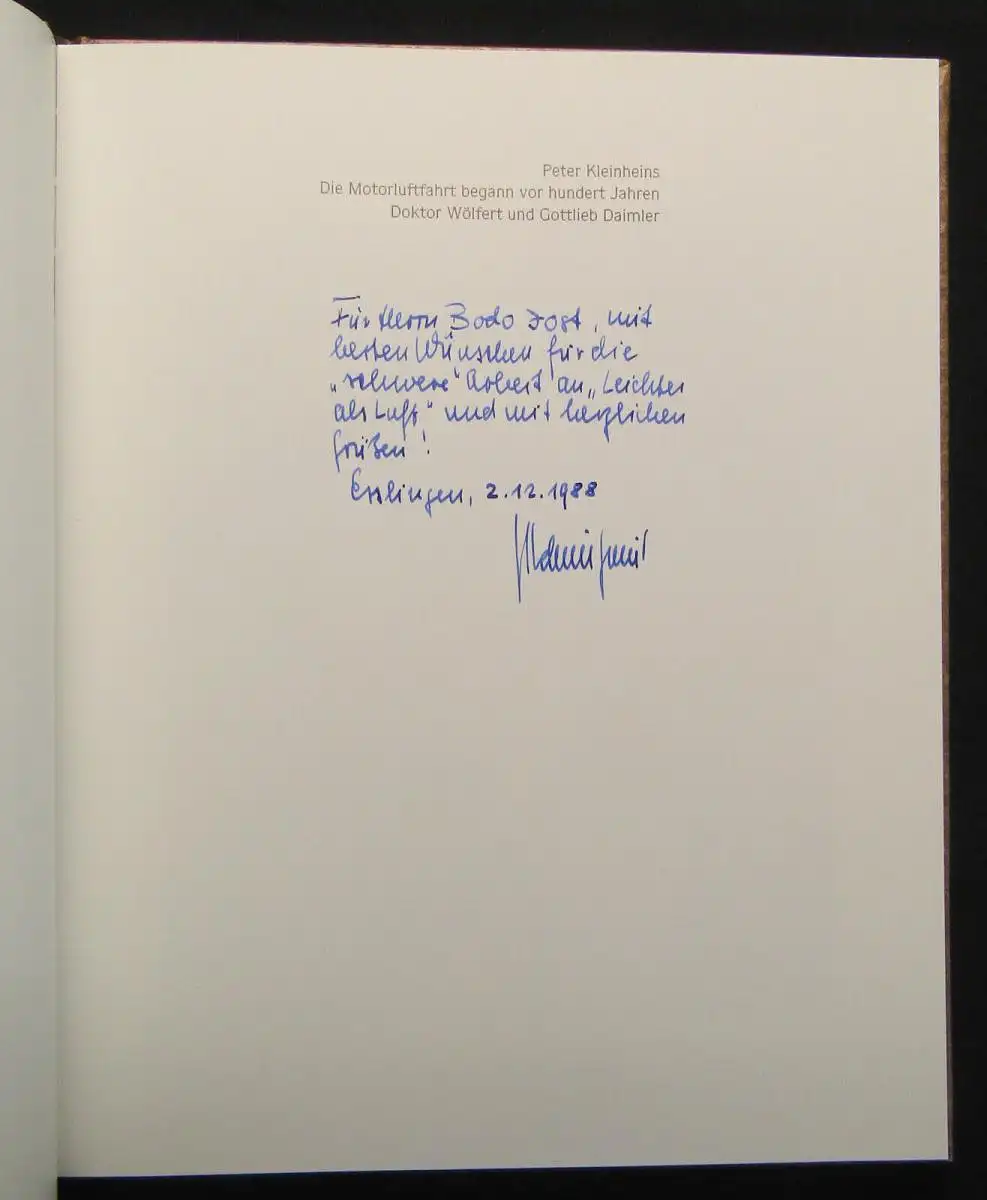 Peter Kleinheins
Die Motorluftfahrt begann vor hundert Jahren
Doktor Wölfert und Gottlieb Daimler
Für Herrn Bodo Jost, mit
besten Wünschen für die
„schwere“ Arbeit an „Leichter
als Luft“ und mit herzlichen
Grüßen!
Esslingen, 2.12.1988